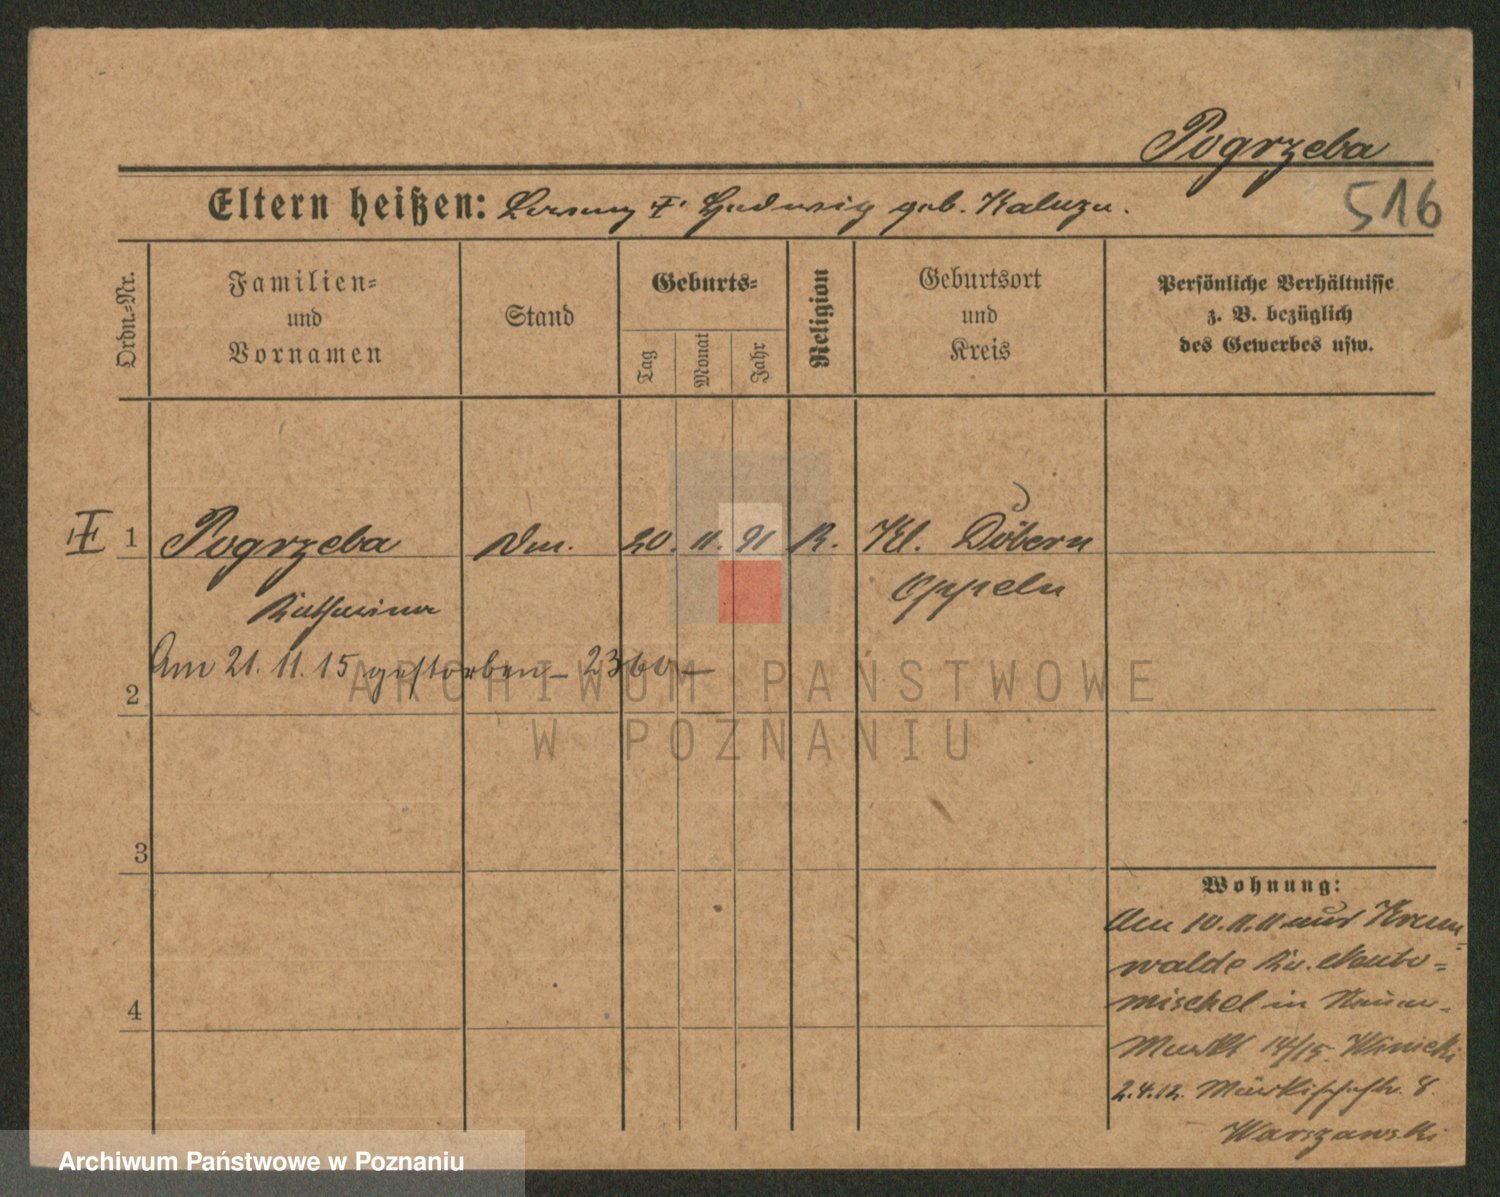 Pogrzeba
516
Eltern heißen: Lorenz ‡ Hedwig geb. Kaluza.
Ordn.-Nr.
Familien- und Vornamen
Stand
Geburts-
Tag
Monat
Jahr
Religion
Geburtsort und Kreis
Persönliche Verhältnisse
z. B. bezüglich
des Gewerbes usw.
1 Pogrzeba 20. 11. 91 K. Kl. Döbern
Katharina Oppeln
Am 21. 11. 15 gestorben – 2360 –
2
3
4
Wohnung:
Am 10.11.11 aus
walde Kr. Neuto=
mischel in
Markt 14/15.
2.4.12. Märkischestr. 8.
Warszawski
ARCHIWUM PAŃSTWOWE
W POZNANIU
Archiwum Państwowe w Poznaniu